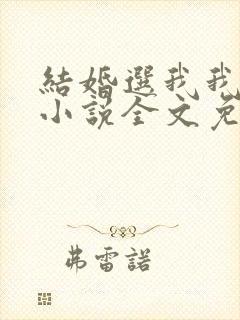 結婚選我我
小說全文免
弗雷諾